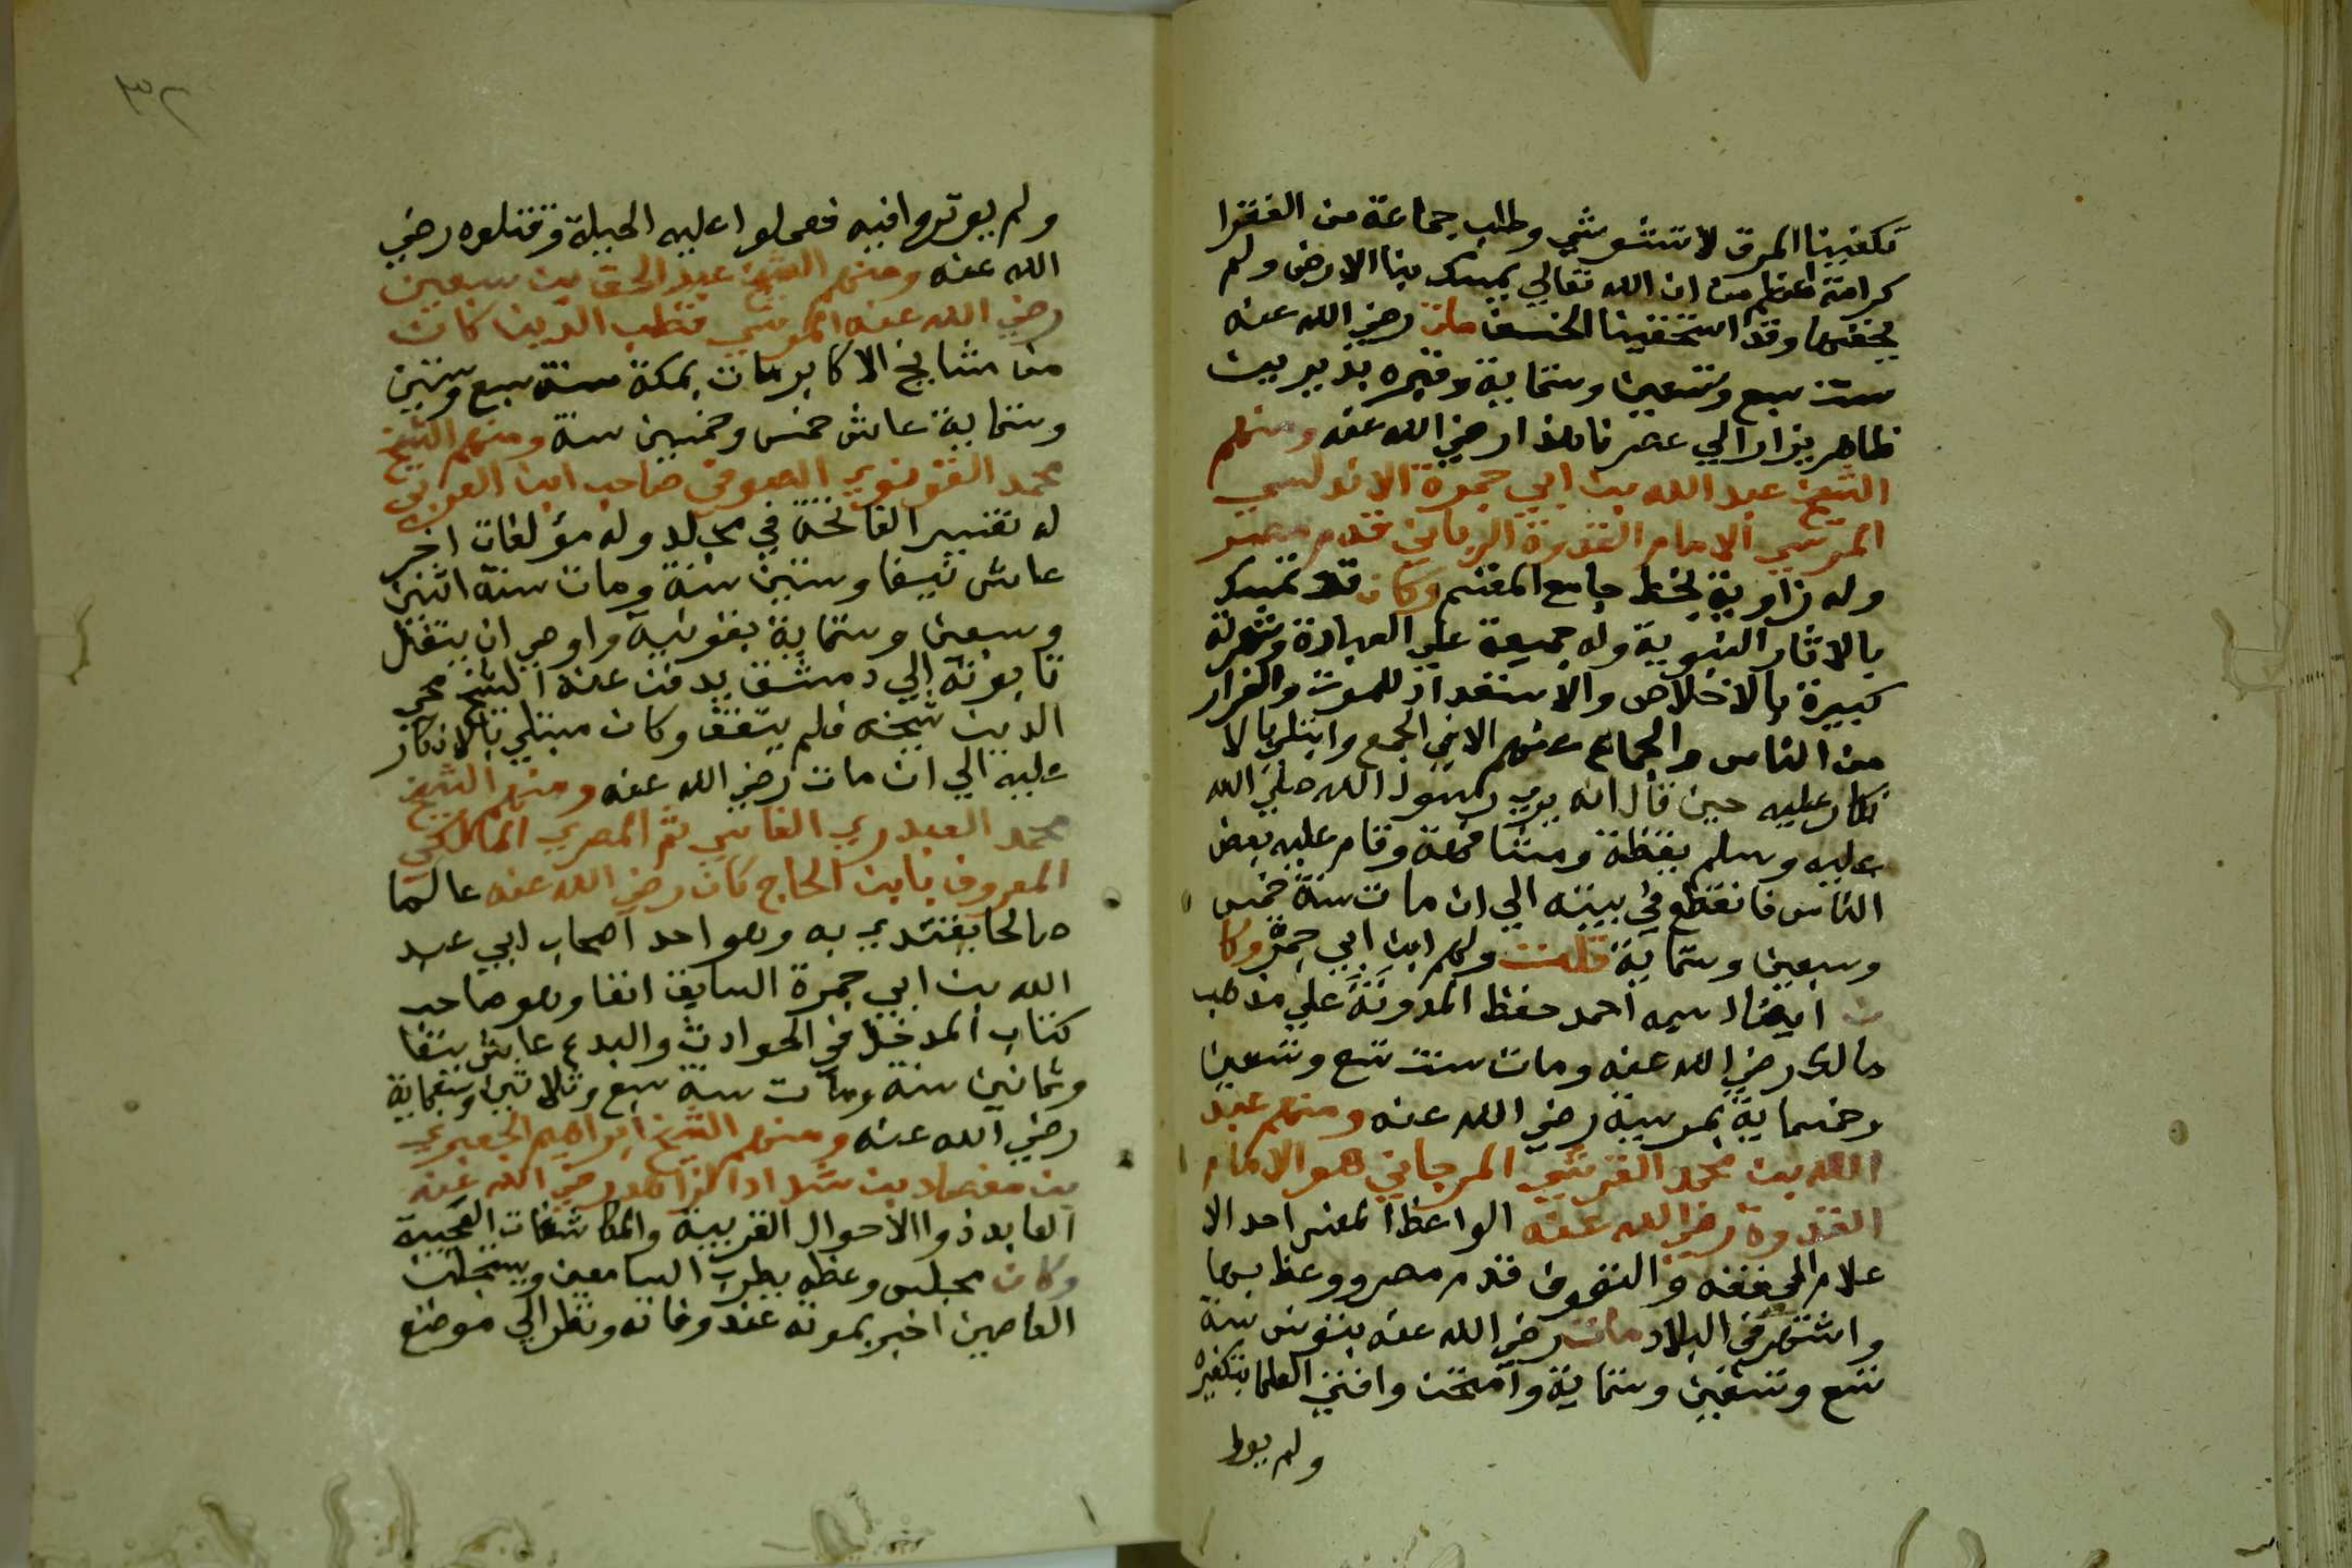 تكفينا المرق لا تتشوشي وطلب جماعة من الفقرا
كرامة اعظم من ان الله تعالي يمسك بنا الارض ولم
يخفسها وقد استحقينا الخسف مات رضي الله عنه
سنت سبع وتسعين وستماية وقبره بدير بيت
ظاهر يزار الي عصرنا هذا رضي الله عنه ومنهم
الشيخ عبد الله بن ابي جمرة الاندلسي
المرسي الامام القدوة الرباني قدم مصر
وله زاوية بخط جامع المقسم وكان قد تمسك
بالاثار النبوية وله جميعة علي العبادة وشهرة
كبيرة بالاخلاص والاستعداد للموت والفرار
من الناس والجماع عنهم الا في الجمع وابتلي بالا
نكار عليه حين قال انه يري رسول الله صلي الله
عليه وسلم يقظة ومشافهة وقام عليه بعض
الناس فانقطع في بيته الي ان مات سنة خمس
وسبعين وستماية قلت ولهم ابن ابي جمرة وكا
ن ايضا اسمه احمد حفظ المدونة علي مذهب
مالك رضي الله عنه ومات سنت تسع وتسعين
وخمسماية بمرسية رضي الله عنه ومنهم عبد
الله بن محمد القرشي المرجاني هو الامام
القدوة رضي الله عنه الواعظ المفسر احد الا
علام الفقه والتصوف قدم مصر ووعظ بها
واشتهر في البلاد مات رضي الله عنه بتونس سنة
تسع وتسعين وستماية وامتحن وافتي العلما بتكفيره
ولم يوط
ولم يوثروا فيه فعملوا عليه الحيلة وقتلوه رضي
الله عنه ومنهم الشيخ عبد الحق بن سبعين
رضي الله عنه المرسي قطب الدين كان
من مشايخ الاكابر مات بمكة سنة سبع وستين
وستماية عاش خمس وخمسين سنة ومنهم الشيخ
محمد القونوي الصوفي صاحب ابن العربي
له تفسير الفاتحة في مجلد وله مؤلفات اخر
عاش نيفا وستين سنة ومات سنة اثنين
وسبعين وستماية بقونية واوصي ان ينقل
تابوته الي دمشق يدفن عند الشيخ محي
الدين شيخه فلم يتفق وكان مبتلي بالانكار
عليه الي ان مات رضي الله عنه ومنهم الشيخ
محمد العبدري الفاسي ثم المصري المالكي
المعروف بابن الحاج كان رضي الله عنه عالما
صالحا يقتدي به وهو احد اصحاب ابي عبد
الله بن ابي جمرة السابق انفا وهو صاحب
كتاب المدخل في الحوادث والبدع عاش نيفا
وثمانين سنة ومات سنة سبع وثلاثين وسبعماية
رضي الله عنه ومنهم الشيخ ابراهيم الجعبري
بن معضاد بن شداد الزاهد رضي الله عنه
العابد ذوا الاحوال الغريبة والمكاشفات العجيبة
وكان مجلس وعظه يطرب السامعين ويستجلب
العاصين اخبر بموته عند وفاته ونظر الي موضع